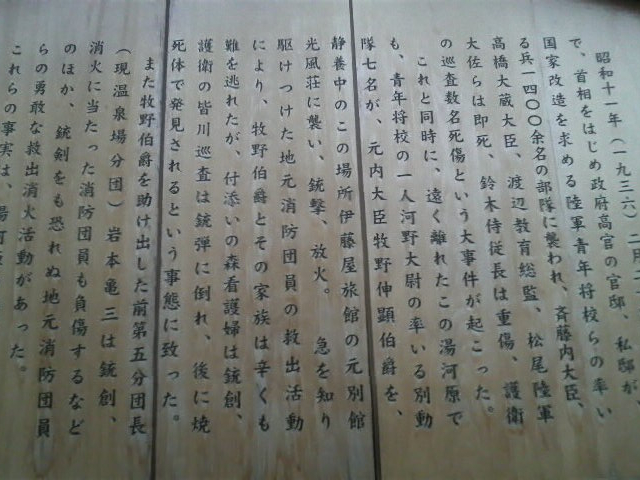 昭和十一年（一九三六）二月二
で、首相をはじめ政府高官の官邸、私邸が、
国家改造を求める陸軍青年将校らの率い
る兵一四〇〇余名の部隊に襲われ、斉藤内大臣、
高橋大蔵大臣、渡辺教育総監、松尾陸軍
大佐らは即死、鈴木侍従長は重傷、護衛
の巡査数名死傷という大事件が起こった。
これと同時に、遠く離れたこの湯河原で
も、青年将校の一人河野大尉の率いる別動
隊七名が、元内大臣牧野伸顕伯爵を、
静養中のこの場所伊藤屋旅館の元別館
光風荘に襲い、銃撃、放火。　急を知り
駆けつけた地元消防団員の救出活動
により、牧野伯爵とその家族は辛くも
難を逃れたが、付添いの森看護婦は銃創、
護衛の皆川巡査は銃弾に倒れ、後に焼
死体で発見されるという事態に致った。
また牧野伯爵を助け出した前第五分団長
（現温泉場分団）岩本亀三は銃創、
消火に当たった消防団員も負傷するなど
のほか、銃剣をも恐れぬ地元消防団員
らの勇敢な救出消火活動があった。
これらの事実は、湯河